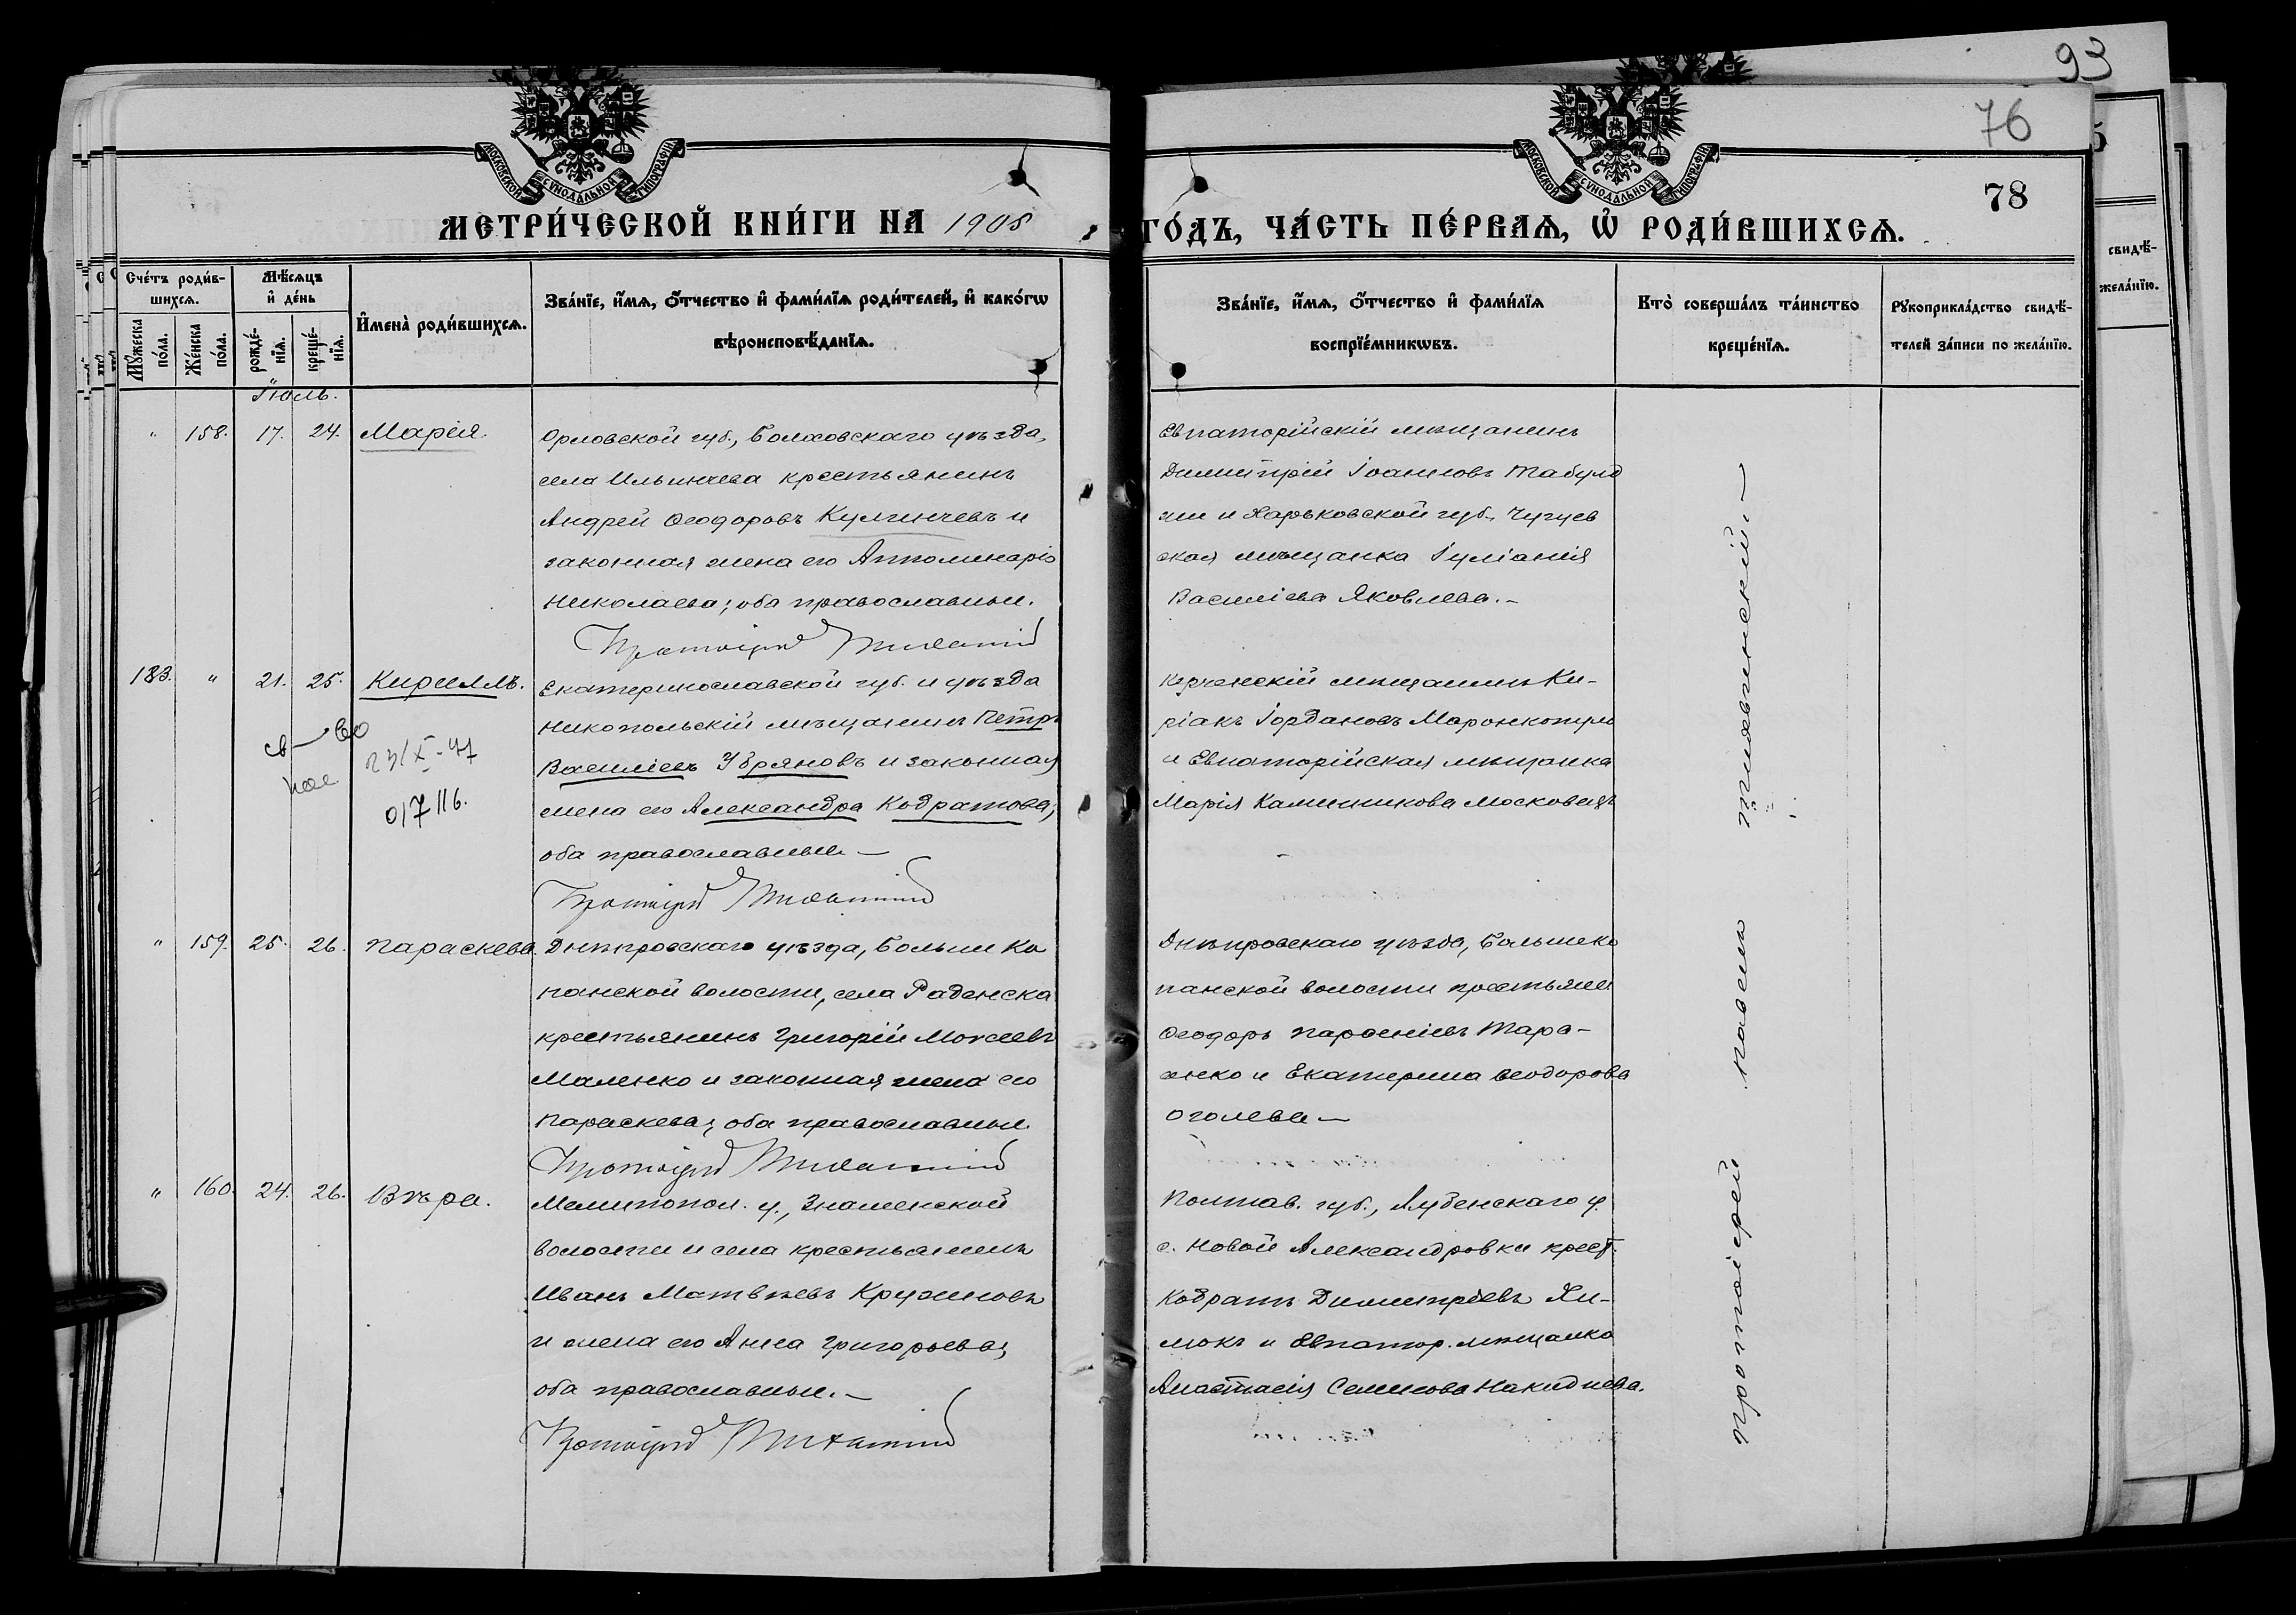 93
76
78
МОСКОВСКОЙ СѴНОДАЛЬНОЙ ТИПОГРАФІИ
МОСКОВСКОЙ СѴНОДАЛЬНОЙ ТИПОГРАФІИ
МЕТРИ́ЧЕСКОЙ КНИ́ГИ НА 1908
ГО́ДЪ, ЧА́СТЬ ПЕ́РВАѦ, Ѽ РОДИ́ВШИХСѦ.
Сче́тъ роди́в-
шихсѧ.
Мѣ́сѧцъ
и҆ де́нь
Мꙋ́жеска
по́ла.
Же́нска
по́ла.
рожде́-
нїѧ.
креще́-
нїѧ.
И҆мена̀ роди́вшихсѧ.
Зва́нїе, и҆́мѧ, ѻ҆́тчество и҆ фами́лїѧ роди́телей, и҆ како́гѡ
вѣроисповѣ́данїѧ.
Зва́нїе, и҆́мѧ, ѻ҆́тчество и҆ фами́лїѧ
воспрїе́мникѡвъ.
Кто̀ соверша́лъ та́инство
креще́нїѧ.
Рꙋкоприкла́дство свидѣ́-
телей за́писи по жела́нїю.
свидѣ́-
жела́нїю.
Іюль.
" 158. 17. 24. Марія.
Орловской губ., Болховскаго уѣзда,
села Ильинчева крестьянинъ
Андрей Ѳеодоровъ Кулгинчевъ и
законная жена его Апполинарія
Николаева; оба православные.
Протоіерей Тихвинскій
Евпаторійскій мѣщанинъ
Димитрій Іоанновъ Табулд
жи и Харьковской губ., Чугуев
ская мѣщанка Іуліанія
Василіева Яковлева.-
183. " 21. 25. Кириллъ.
св-во
23/X-47
017116.
Екатеринославской губ. и уѣзда
Никопольскій мѣщанинъ Петръ
Василіевъ Убряновъ и законная
жена его Александра Кодратова;
оба православные —
Протоіерей Тихвинскій
Керченскій мѣщанинъ Ки-
ріакъ Іордановъ Маронкопуло
и Евпаторійская мѣщанка
Марія Каминникова Московецъ
" 159. 25. 26. Параскева.
Днѣпровскаго уѣзда, Больше Ко
панской волости, села Раденска
крестьянинъ Григорій Моѵсеевъ
Маленко и законная жена его
Параскева; оба православные.
Протоіерей Тихвинскій
Днѣпровскаго уѣзда, Большеко
панской волости крестьяне
Ѳеодоръ Парѳеніевъ Тара-
сенко и Екатерина Ѳеодорова
Оголева —
" 160. 24. 26. Вѣра.
Мелитопол. у., Знаменской
волости и села крестьянинъ
Иванъ Матвѣевъ Кружиловъ
и жена его Анна Григорьева;
оба православные. —
Протоіерей Тихвинскій
Полтав. губ., Лубенскаго у.
с. Новой Александровки крест.
Кодратъ Димитріевъ Хи-
мокъ и Евпатор. мѣщанка
Анастасія Семенова Накиднева.
Протоіерей Павелъ Тихвинскій. —